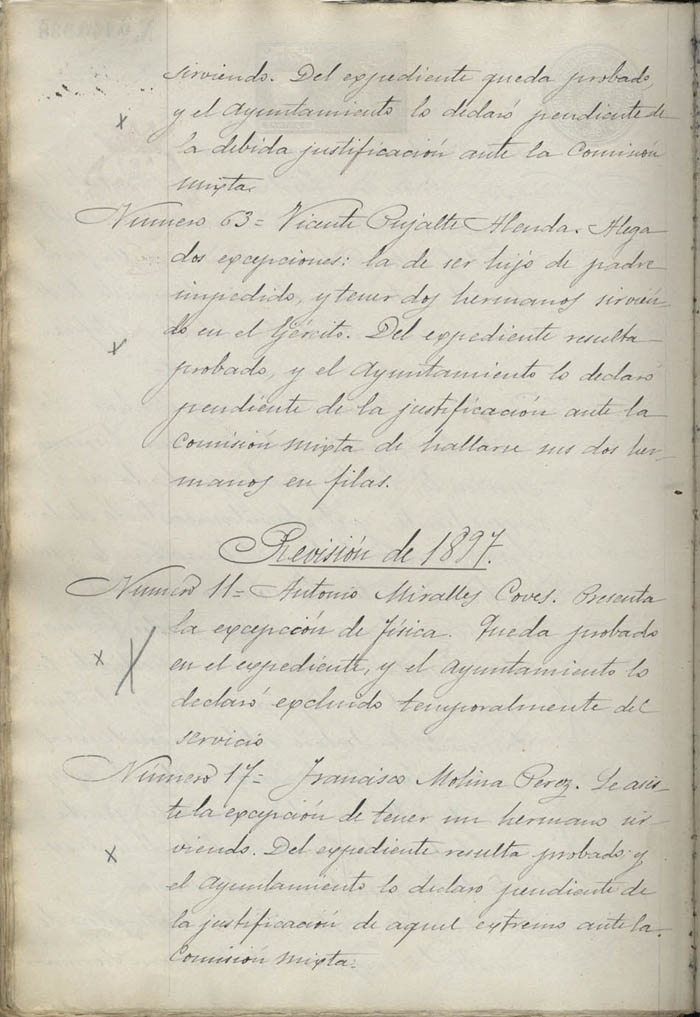 sirviendo. Del expediente queda probado,
y el Ayuntamiento lo declaró pendiente de
la debida justificación ante la Comisión
mixta.
Número 63 = Vicente Pujalte Alenda. Alega
dos excepciones: la de ser hijo de padre
impedido, y tener dos hermanos sirvien-
do en el Ejército. Del expediente resulta
probado, y el Ayuntamiento lo declaró
pendiente de la justificación ante la
Comisión mixta de hallarse sus dos her-
manos en filas.
Revisión de 1897.
Número 11 = Antonio Miralles Coves. Presenta
la excepción de física. Queda probado
en el expediente, y el Ayuntamiento lo
declaró excluido temporalmente del
servicio
Número 17 = Francisco Molina Perez. Le asis-
te la excepción de tener un hermano sir-
viendo. Del expediente resulta probado y
el Ayuntamiento lo declaró pendiente de
la justificación de aquel extremo ante la
Comisión mixta.